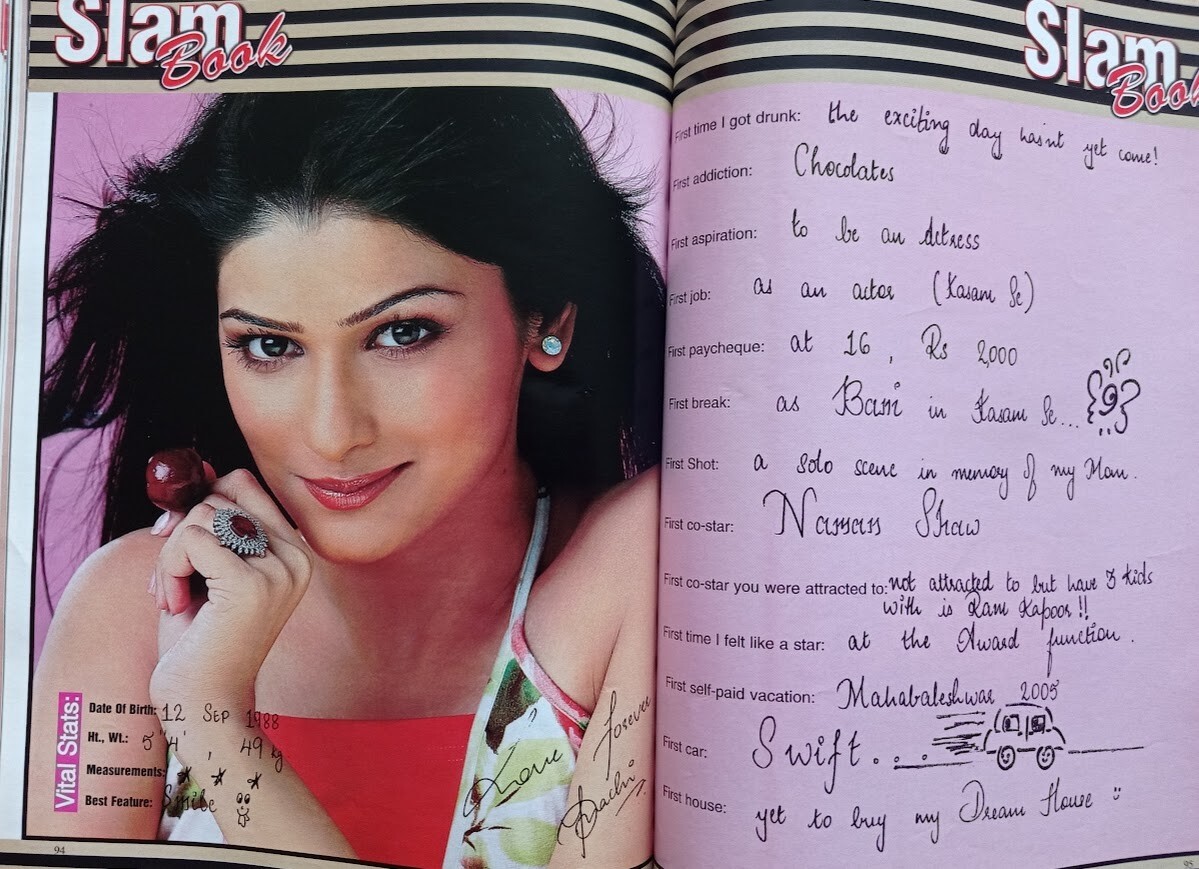 Slam
Book
Vital Stats:
Date Of Birth: 12 SEP 1988
Ht., Wt.: 5"4' , 49 kg
Measurements: * * *
Best Feature: Smile
Love
forever
Prachi
94
Slam
Book
First time I got drunk: the exciting day hasn't yet come!
First addiction: Chocolates
First aspiration: to be an Actress
First job: as an actor (Kasam Se)
First paycheque: at 16 , Rs 2,000
First break: as Bani in Kasam Se...
First Shot: a solo scene in memory of my Mom.
First co-star: Naman Shaw
First co-star you were attracted to: not attracted to but have 3 kids
with is Ram Kapoor!!
First time I felt like a star: at the Award function.
First self-paid vacation: Mahabaleshwar 2005
First car: Swift....
First house: yet to buy my Dream House
95